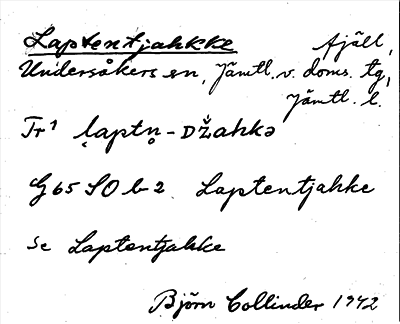 Laptentjahkke Fjäll,
Undersåkers sn, Jämtl. v. doms. tg,
Jämtl. l.
Tr¹ l̨aptn̥ - DŽahkə
G 65 SO b 2 Laptentjahke
se Laptentjahke
Björn Collinder 1942